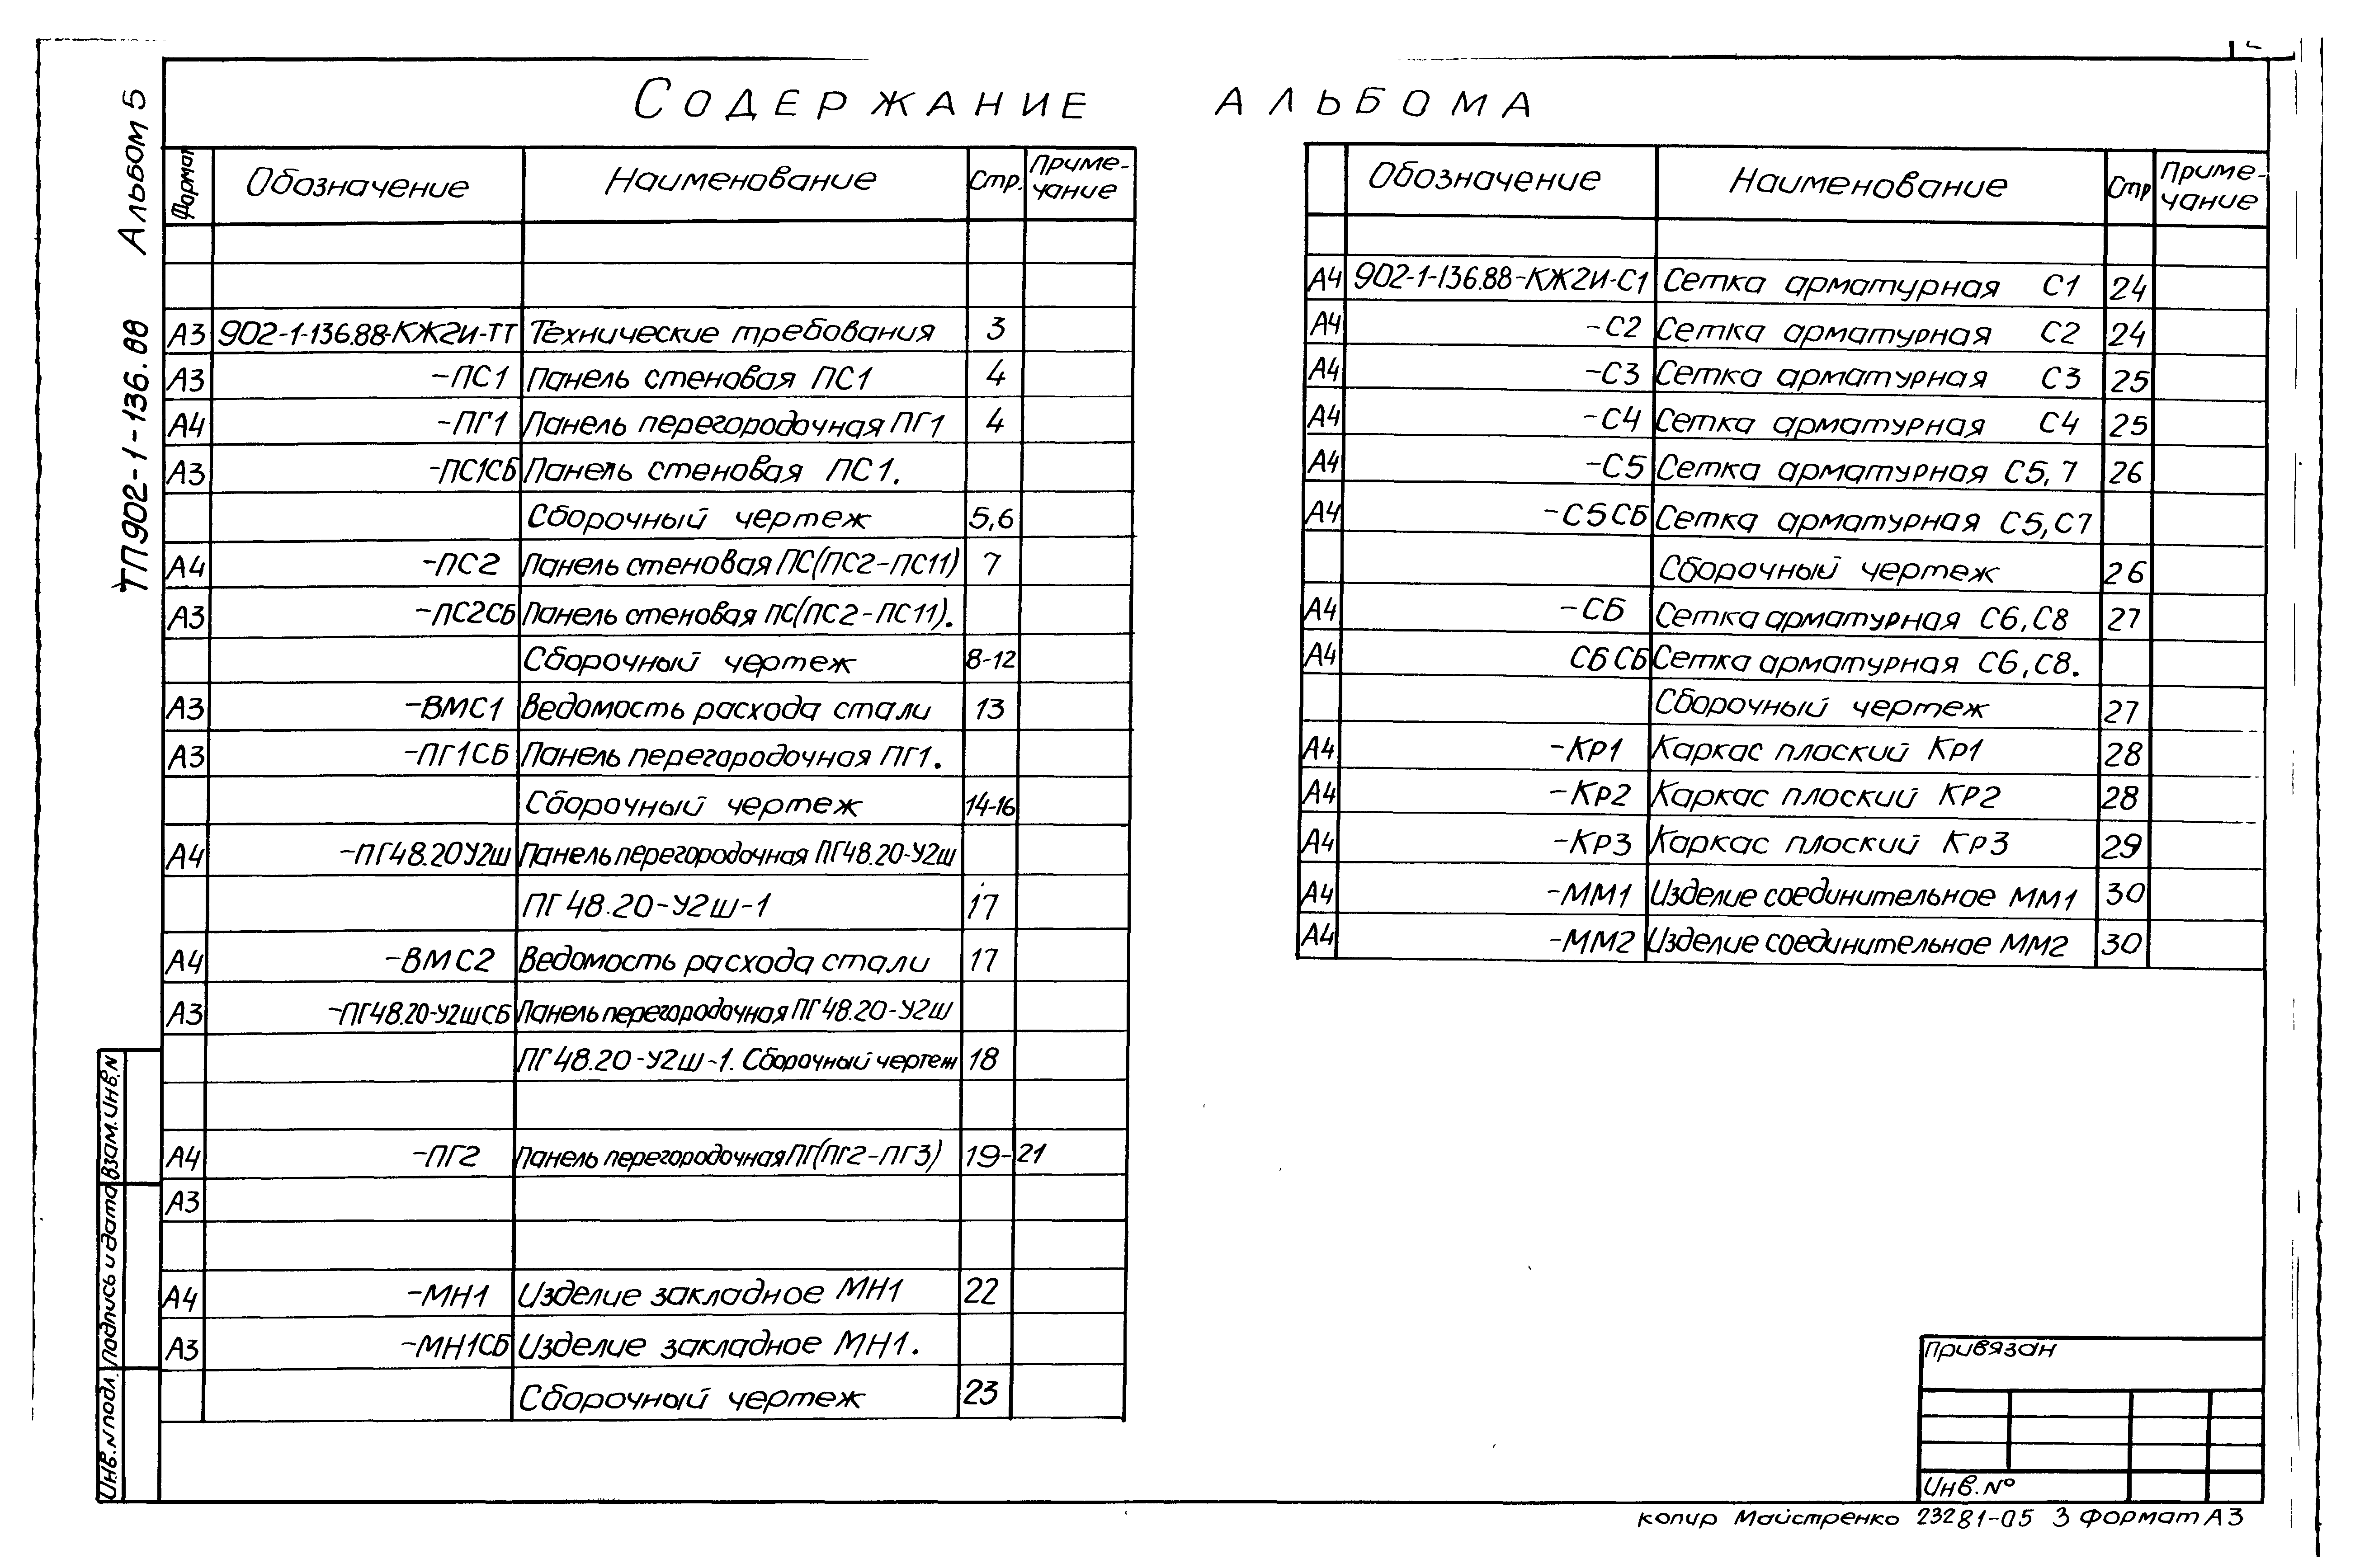 Содержание альбома
Альбом 5
ТП902-1-136.88
Формат Обозначение Наименование Стр. Приме-чание
А3 902-1-136.88-КЖ2И-ТТ Технические требования 3
А3 -ПС1 Панель стеновая ПС1 4
А4 -ПГ1 Панель перегородочная ПГ1 4
А3 -ПС1СБ Панель стеновая ПС1.
Сборочный чертеж 5,6
А4 -ПС2 Панель стеновая ПС(ПС2-ПС11) 7
А3 -ПС2СБ Панель стеновая ПС(ПС2-ПС11).
Сборочный чертеж 8-12
А3 -ВМС1 Ведомость расхода стали 13
А3 -ПГ1СБ Панель перегородочная ПГ1.
Сборочный чертеж 14-16
А4 -ПГ48.20У2ш Панель перегородочная ПГ48.20-У2ш
ПГ48.20-У2ш-1 17
А4 -ВМС2 Ведомость расхода стали 17
А3 -ПГ48.20-У2шСБ Панель перегородочная ПГ48.20-У2ш
ПГ48.20-У2ш-1. Сборочный чертеж 18
А4 -ПГ2 Панель перегородочная ПГ(ПГ2-ПГ3) 19-21
А3
А4 -МН1 Изделие закладное МН1 22
А3 -МН1СБ Изделие закладное МН1.
Сборочный чертеж 23
Обозначение Наименование Стр Приме-чание
А4 902-1-136.88-КЖ2И-С1 Сетка арматурная С1 24
А4 -С2 Сетка арматурная С2 24
А4 -С3 Сетка арматурная С3 25
А4 -С4 Сетка арматурная С4 25
А4 -С5 Сетка арматурная С5,7 26
А4 -С5СБ Сетка арматурная С5,С7
Сборочный чертеж 26
А4 -СБ Сетка арматурная С6,С8 27
А4 СБСБ Сетка арматурная С6,С8.
Сборочный чертеж 27
А4 -Кр1 Каркас плоский Кр1 28
А4 -Кр2 Каркас плоский Кр2 28
А4 -Кр3 Каркас плоский Кр3 29
А4 -ММ1 Изделие соединительное ММ1 30
А4 -ММ2 Изделие соединительное ММ2 30
Взам.инв.N
Подпись и дата
Инв.N подл.
Привязан
Инв.№
копир Майстренко 23281-05 3 Формат А3